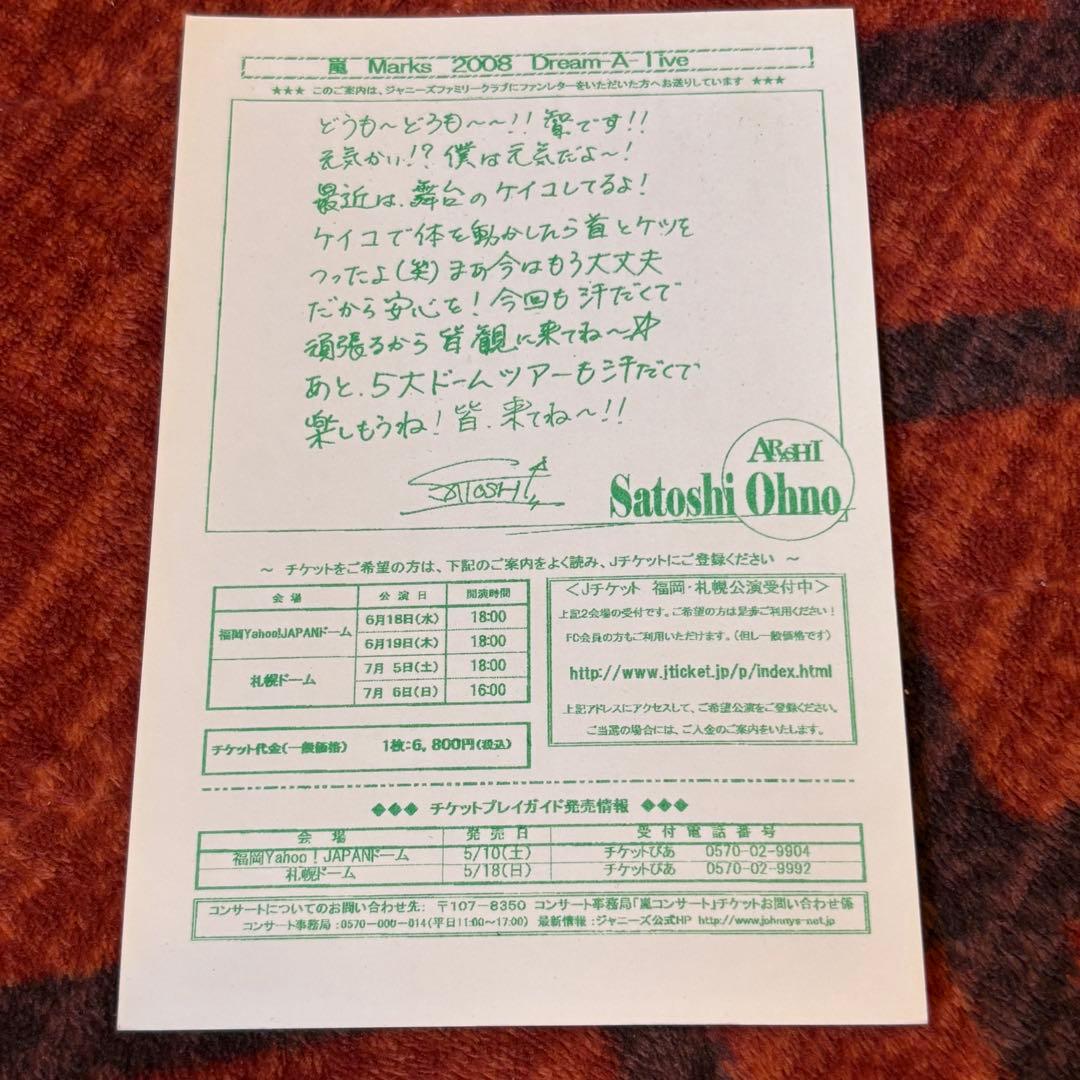 嵐 Marks 2008 Dream-A-live
★★★ このご案内は、ジャニーズファミリークラブにファンレターをいただいた方へお送りしています ★★★
どうも〜どうも〜〜!! 智です!!
元気かい!? 僕は元気だよ〜!
最近は、舞台のケイコしてるよ!
ケイコで体を動かしたら首とケツを
つったよ(笑) まぁ今はもう大丈夫
だから安心を! 今回も汗だくで
頑張るから皆観に来てね〜☆
あと、5大ドームツアーも汗だくで
楽しもうね! 皆、来てね〜!!
SATOSHI
ARASHI
Satoshi Ohno
〜 チケットをご希望の方は、下記のご案内をよく読み、Jチケットにご登録ください 〜
会場 公演日 開演時間
福岡Yahoo!JAPANドーム 6月18日(水) 18:00
6月19日(木) 18:00
札幌ドーム 7月 5日(土) 18:00
7月 6日(日) 16:00
チケット代金(一般価格) 1枚:6,800円(税込)
<Jチケット 福岡・札幌公演受付中>
上記2会場の受付です。ご希望の方は是非ご利用ください!
FC会員の方もご利用いただけます。(但し一般価格です)
http://www.jticket.jp/p/index.html
上記アドレスにアクセスして、ご希望公演をご登録ください。
ご当選の場合には、ご入金のご案内をいたします。
◆◆◆ チケットプレイガイド発売情報 ◆◆◆
会場 発売日 受付電話番号
福岡Yahoo!JAPANドーム 5/10(土) チケットぴあ 0570-02-9904
札幌ドーム 5/18(日) チケットぴあ 0570-02-9992
コンサートについてのお問い合わせ先: 〒107-8350 コンサート事務局「嵐コンサート」チケットお問い合わせ係
コンサート事務局:0570-000-014(平日11:00〜17:00) 最新情報:ジャニーズ公式HP http://www.johnnys-net.jp